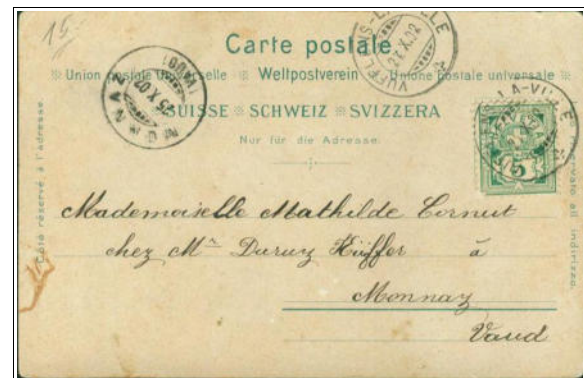 15.
Carte postale.
Union postale universelle Weltpostverein Unione postale universale
SUISSE SCHWEIZ SVIZZERA
Nur für die Adresse.
Côté réservé à l'adresse.
VUFFLENS-LA-VILLE
X.02
MONNAZ
25 X 02
(VAUD)
LA-VILLE
5
Mademoiselle Mathilde Cornut
chez Mr Duruz Küffer à
Monnaz
Vaud